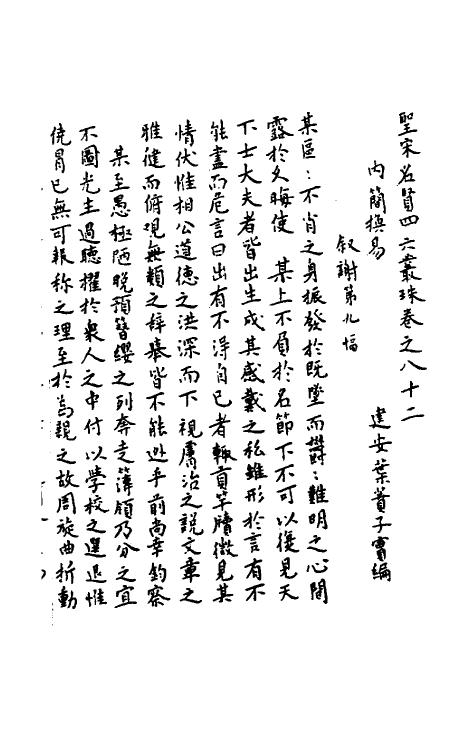 聖宋名賢四六叢珠卷之八十二
建安葉蕡子實編
內簡換易
叙謝第九幅
某區：不肖之身振發於既墜而欝：難明之心開
露於久晦使　某上不負於名節下不可以復見天
下士大夫者皆出生成其感戴之私雖形於言有不
能盡而危言曰出有不得自已者輙貢竿牘微見其
情伏惟相公道德之洪深而下視膚治之説文章之
雅健而俯覌無類之辝葢皆不能逃乎前尚幸鈞察
某至愚極陋晚預簪纓之列奔走簿領乃分之宜
不圖光主過聴擢於衆人之中付以學校之選退惟
僥冒已無可報称之理至於為親之故周旋曲折動